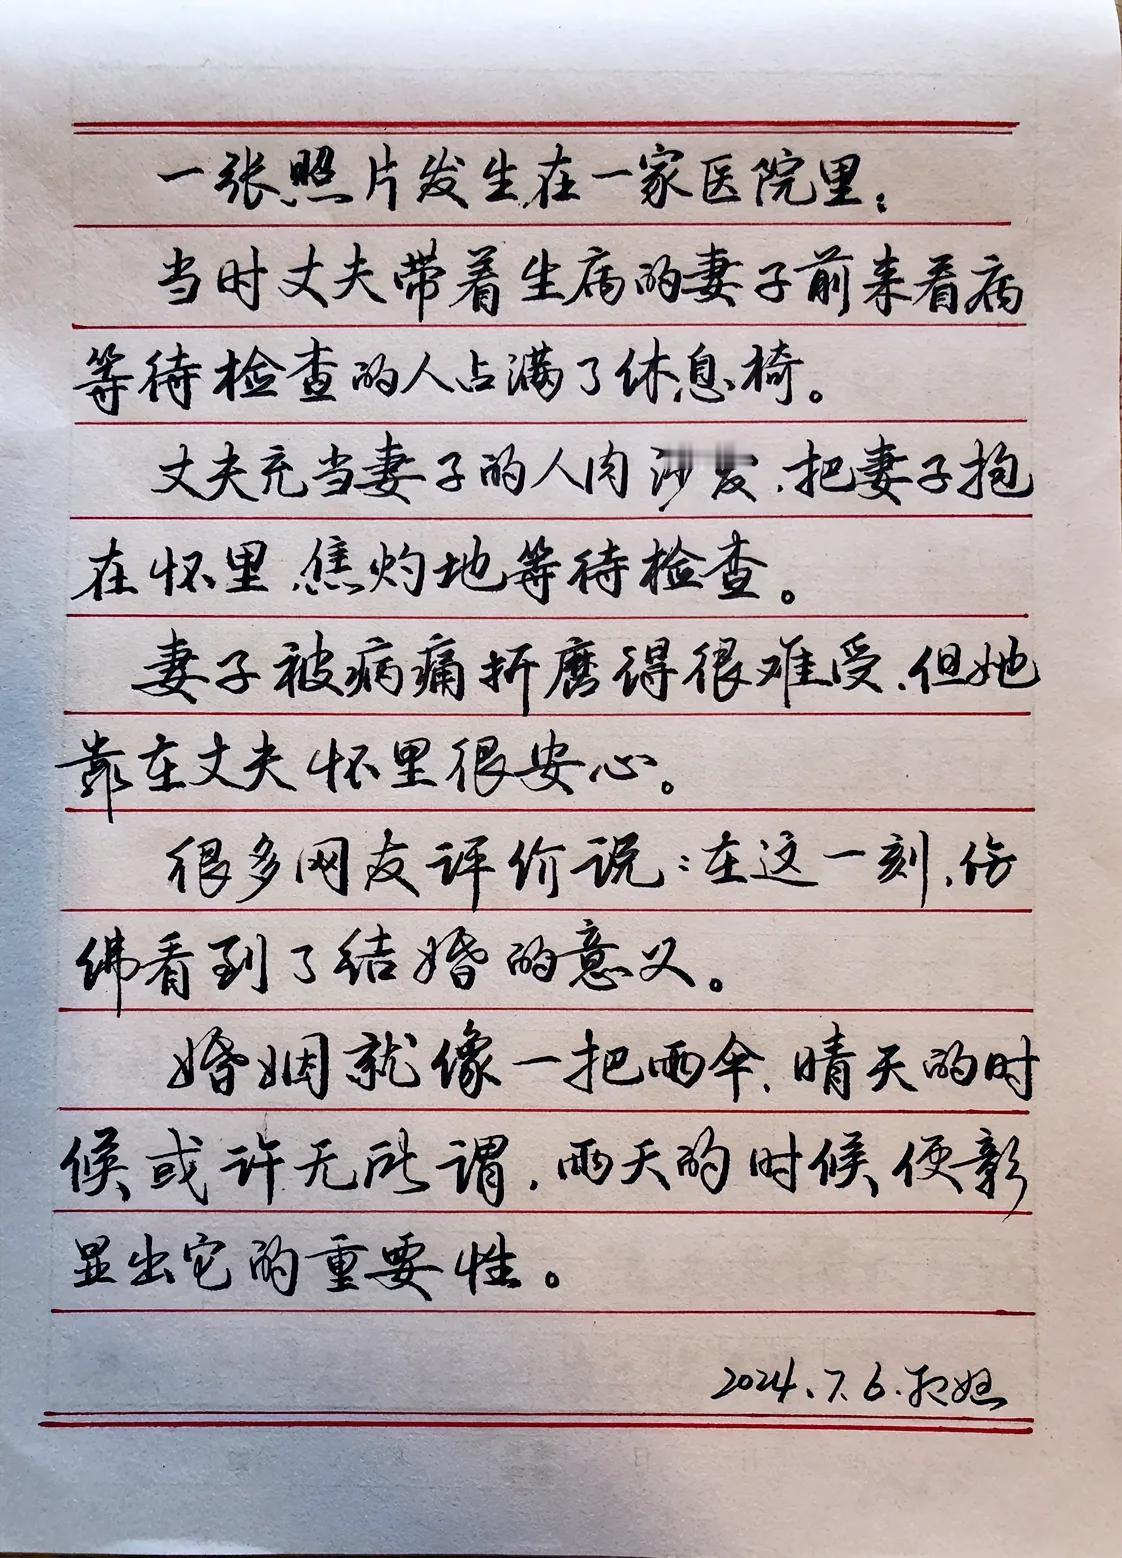 一张照片发生在一家医院里：
当时丈夫带着生病的妻子前来看病
等待检查的人占满了休息椅。
丈夫充当妻子的人肉沙发，把妻子抱
在怀里，焦灼地等待检查。
妻子被病痛折磨得很难受，但她
靠在丈夫怀里很安心。
很多网友评价说：在这一刻，仿
佛看到了结婚的意义。
婚姻就像一把雨伞，晴天的时
候或许无所谓，雨天的时候便彰
显出它的重要性。
2024.7.6.